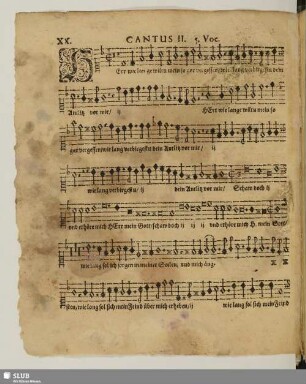 XX. CANTUS II. 5. Voc.
HErr wie lang wiltu mein so gar vergessen wie lang verbirgestu dein
Antlitz vor mir/ HErr wie lange wiltu mein so
gar vergessen wie lang verbirgestu dein Antlitz vor mir/ ij
wie lang verbirgestu/ ij dein Antlitz vor mir/ Schaw doch ij
und erhöre mich HErr mein Gott schaw doch ij ij ij und erhöre mich H. mein Gott/
wie lang sol ich sorgen in meiner Seelen/ und mich äng-
sten/ wie lang sol sich mein Feind über mich erheben/ ij wie lang sol sich mein Feind
SLUB